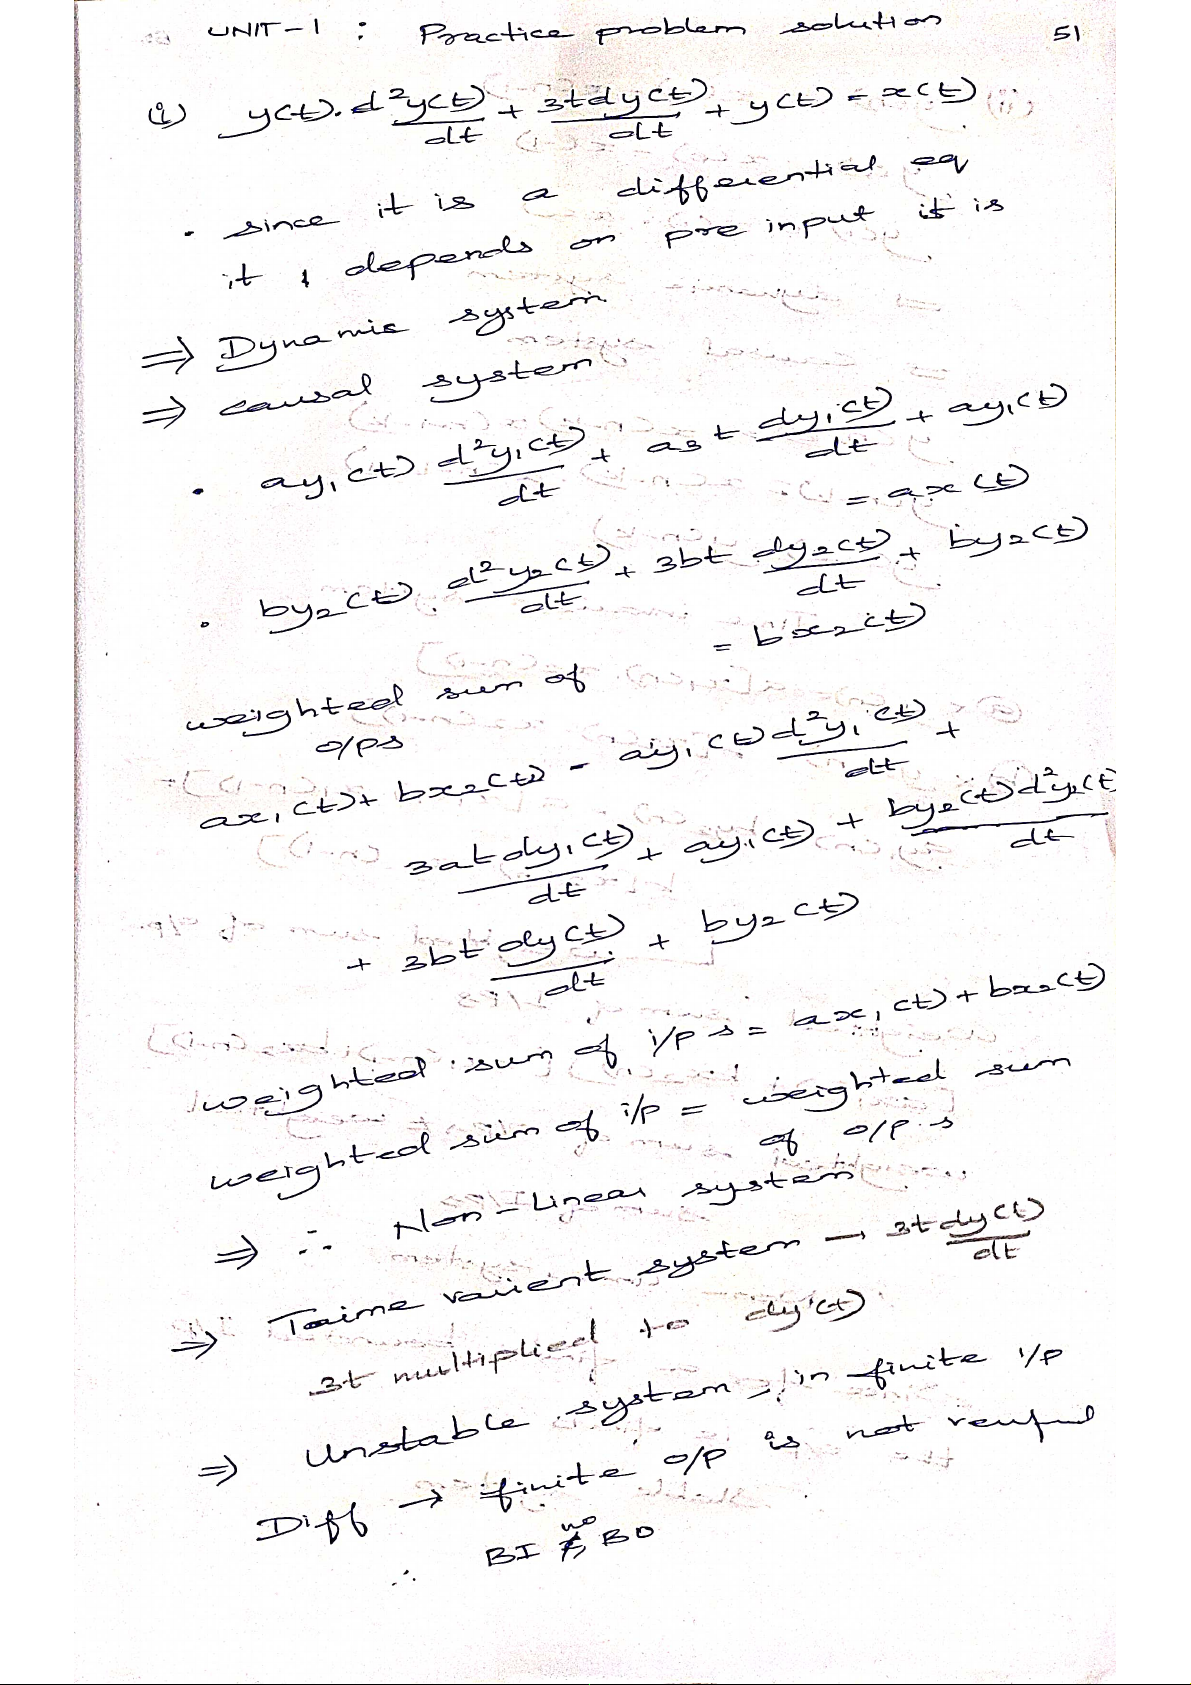 UNIT-1 : Practice problem solution 51
(i) y(t). d²y(t)/dt + 3tdy(t)/dt + y(t) = x(t)
• since it is a differential eq
it , depends on pre input it is
⇒ Dynamic system
⇒ causal system
• ay₁(t) d²y₁(t)/dt + a3t dy₁(t)/dt + ay₁(t)
= ax(t)
• by₂(t). d²y₂(t)/dt + 3bt dy₂(t)/dt + by₂(t)
= bx₂(t)
weighted sum of
o/ps
ax₁(t)+ bx₂(t) = ay₁(t) d²y₁(t)/dt +
3at dy₁(t)/dt + ay₁(t) + by₂(t) d²y₂(t)/dt
+ 3bt dy(t)/dt + by₂(t)
weighted sum of i/p s = ax₁(t) + bx₂(t)
weighted sum of i/p = weighted sum
of o/p.s
⇒ ∴ Non-Linear system
⇒ Taime vaiient system → 3t dy(t)/dt
3t multiplied to dy'(t)
⇒ Unstable system, in finite i/p
Diff → finite o/p is not
∴ BI no BO